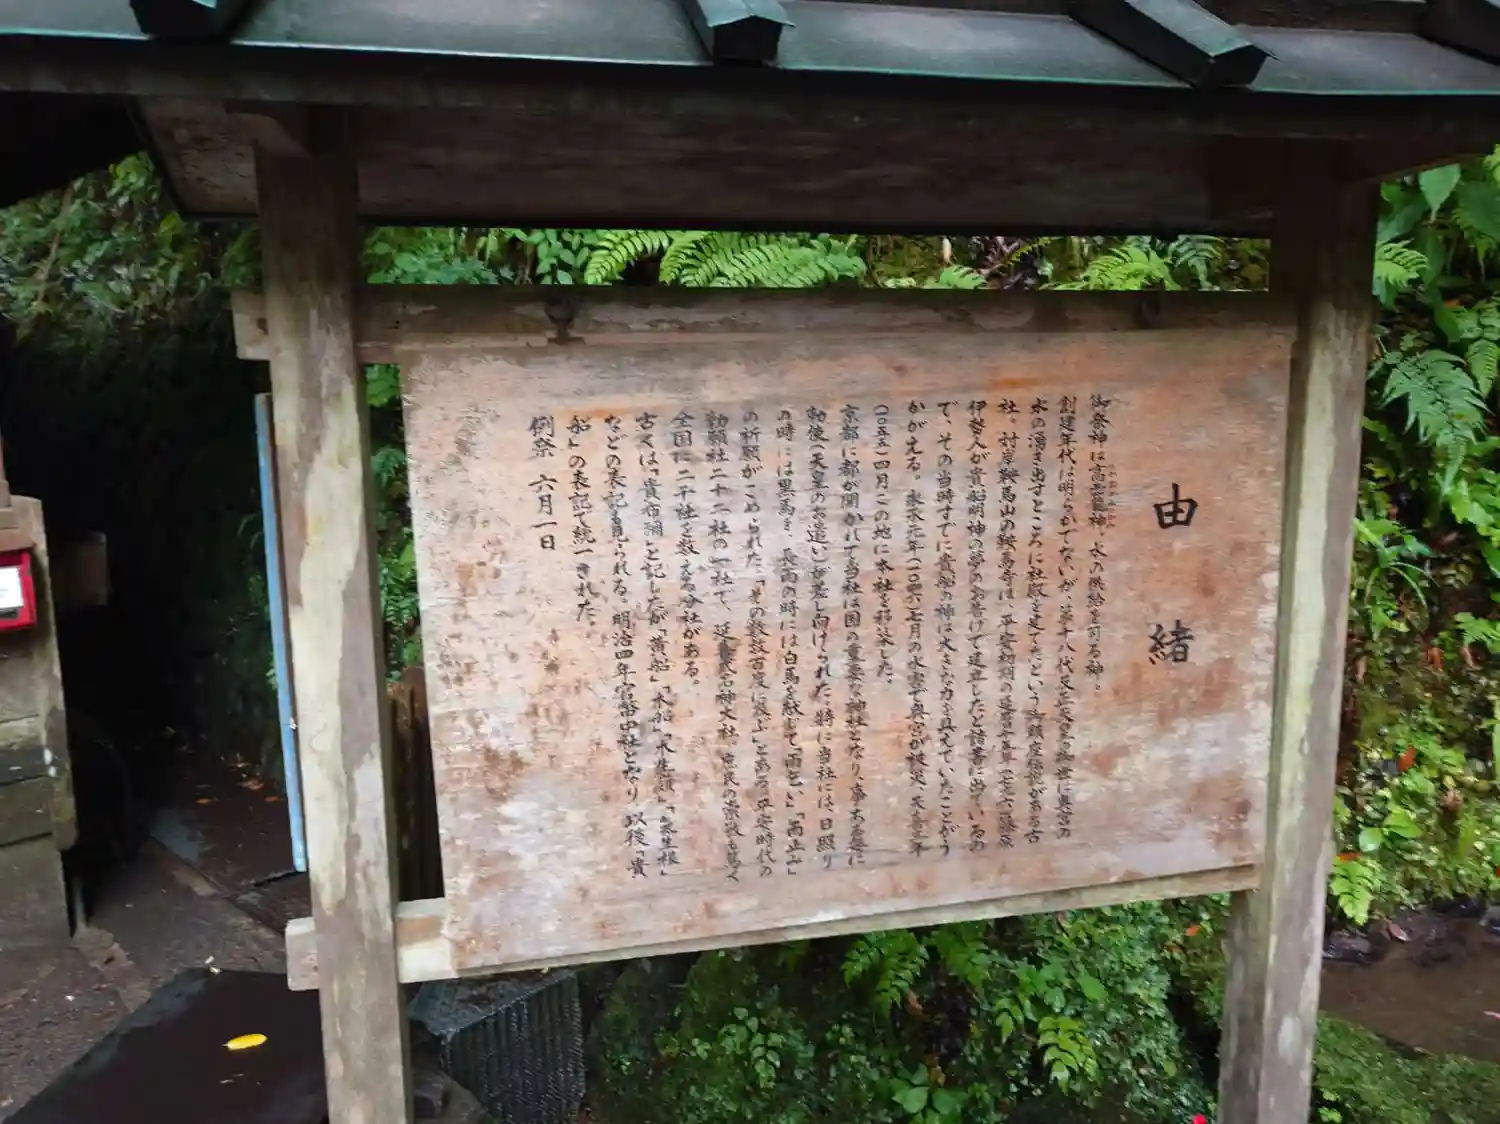 由緒
御祭神は高龗神。水の供給を司る神。
創建年代は明らかでないが、第十八代反正天皇の御世に奥宮の
水の湧き出すところに社殿を建てたという御鎮座伝説がある古
社。対岸鞍馬山の鞍馬寺は、平安初期の延暦十五年(七九六)藤原
伊勢人が貴船明神の夢のお告げで建立したと諸書に出ているの
で、その当時すでに貴船の神は大きな力を具えていたことがう
かがえる。永承元年(一〇四六)七月の水害で奥宮が被災、天喜三年
(一〇五五)四月この地に本社を移築した。
京都に都が開かれて当社は国の重要な神社となり、事ある度に
勅使(天皇のお遣い)が差し向けられた。特に当社には、日照り
の時には黒馬を、長雨の時には白馬を献じて「雨乞い」「雨止み」
の祈願がこめられた。「その数数百度に及ぶ」とある。平安時代の
勅願社二十二社の一社で、延喜式名神大社、庶民の崇敬も篤く
全国に二千社を数える分社がある。
古くは「貴布禰」と記したが「黄船」「木船」「木生嶺」「気生根」
などの表記も見られる。明治四年官幣中社となり、以後「貴
船」の表記で統一された。
例祭 六月一日